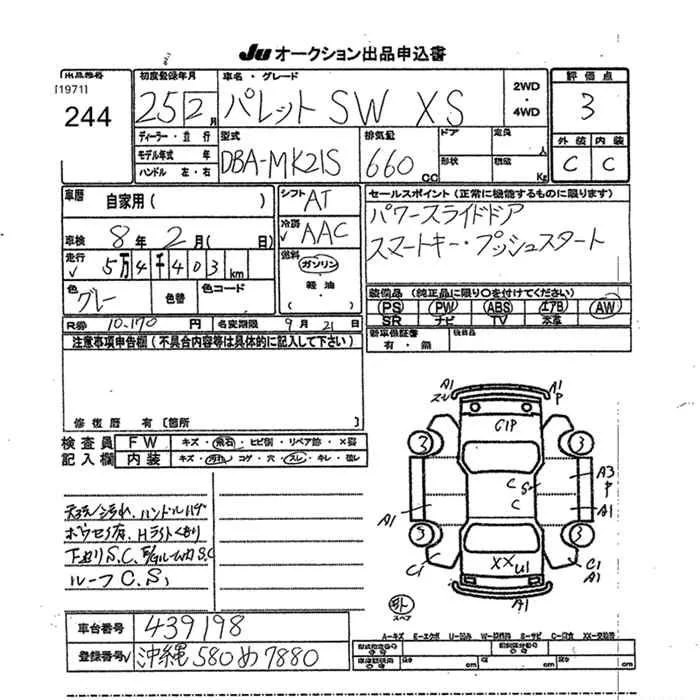 JU オークション出品申込書
出品番号
[1971]
244
初度登録年月
25 12月
車名・グレード
パレット SW XS
2WD
・
4WD
評価点
3
外装 内装
C C
ディーラー・並行
モデル年式 年
ハンドル 左・右
型式
DBA-MK21S
排気量
660 CC
ドア
形状
定員 人
積載 Kg
車歴 自家用( )
車検 8年 2月( 日)
走行 ✓ 5万4千403 km
色 グレー
色替
色コード
シフト AT
冷房 ✓ AAC
燃料 ガソリン
軽油
セールスポイント(正常に機能するものに限ります)
パワースライドドア
スマートキー・プッシュスタート
装備品(純正品に限り○を付けてください)
PS PW ABS エアB AW
SR ナビ TV 本革
新車保証書
有・無
R券 10,170 円 名変期限 9月 21日
注意事項申告欄(不具合内容等は具体的に記入して下さい)
修復歴 有 [箇所 ]
検査員 FW キズ・飛石・ヒビ割・リペア跡・X要
記入欄 内装 キズ・汚れ・コゲ・穴・スレ・キレ・
天張り汚れ、ハンドルハゲ
Hライトくもり
下廻りS.C.
ルーフC.S
A1
A1
P
G1P
2
3
C
S
C
A3
P
A1
A1
3
3
C1
XX U1
C1
A1
A1
スペア
A=キズ E=エクボ U=凹み S=サビ C=腐食 XX=交換等
車台番号 439198
登録番号 ✓ 沖縄 580 め 7880
cm cm cm